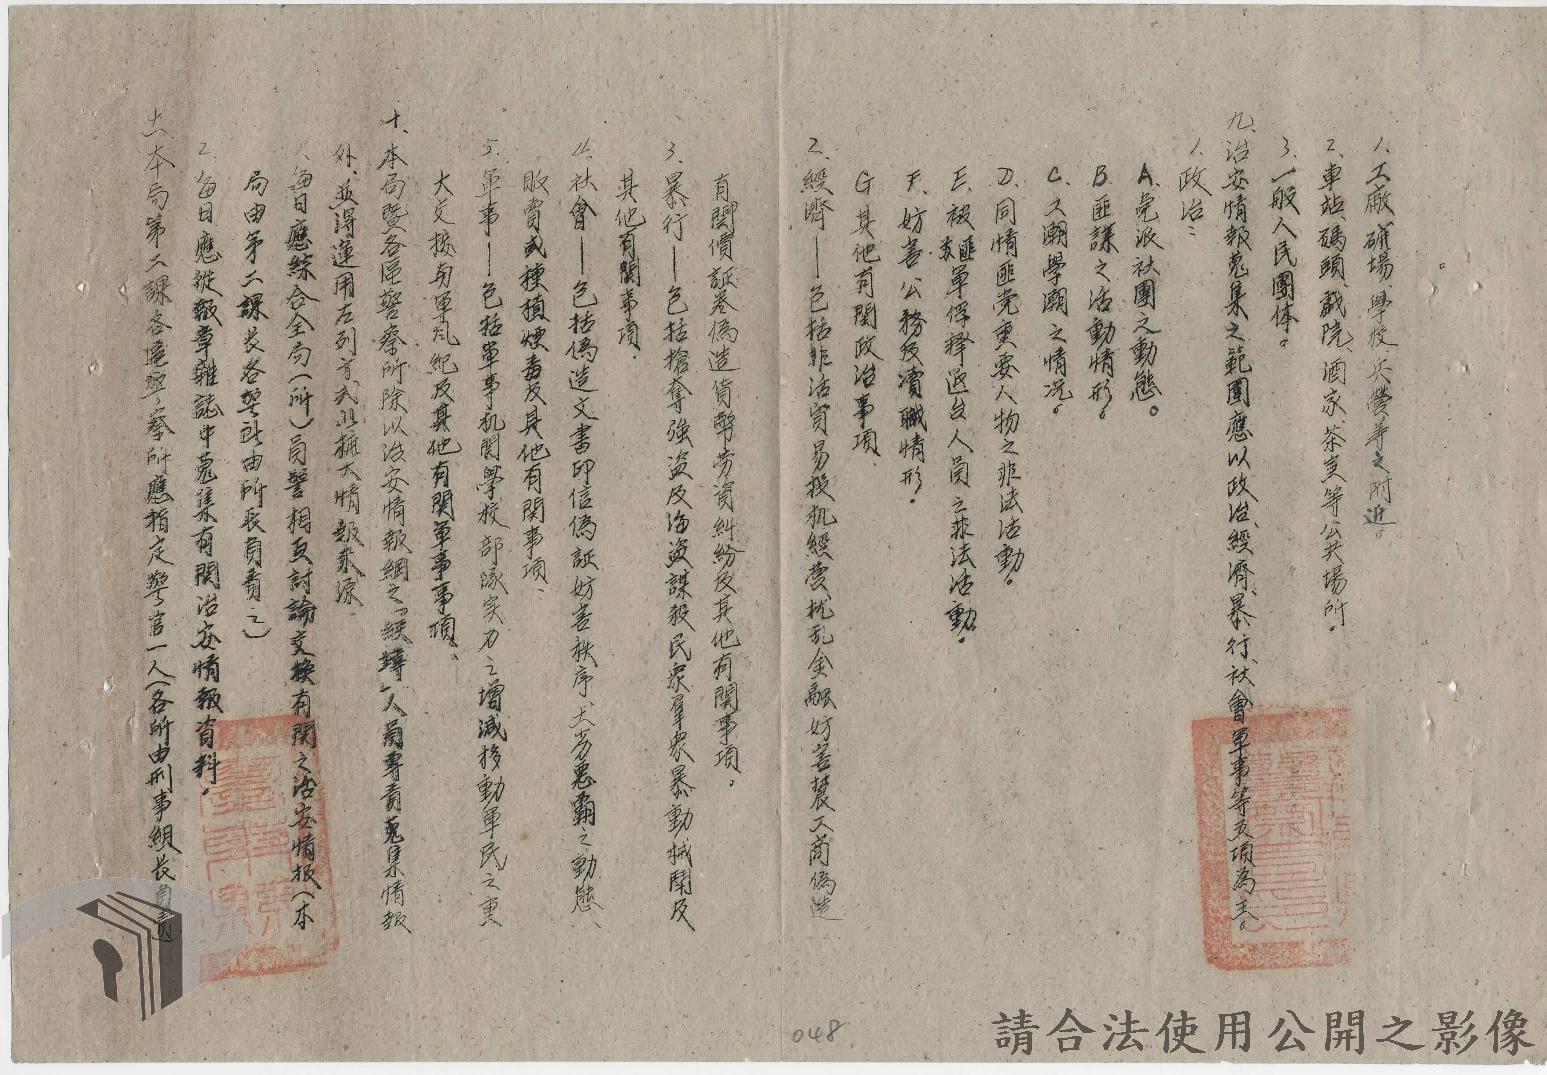 1、工廠、礦場、學校、兵營等之附近。
2、車站、碼頭、戲院、酒家、茶室等公共場所。
3、一般人民團体。
九、治安情報蒐集之範圍應以政治、經濟、暴行、社會、軍事等五項為主。
1、政治:
A、党派社團之動態。
B、匪諜之活動情形。
C、工潮學潮之情況。
D、同情匪党重要人物之非法活動。
E、被匪軍俘釋返台人員之非法活動。
F、妨害公務及瀆職情形。
G、其他有関政治事項、
2、經濟——包括非法貿易投机經營、扰乱金融妨害農工商偽造
有関價証券偽造貨幣勞資糾紛及其他有関事項。
3、暴行——包括搶奪強盜及海盜謀殺民眾羣眾暴動械鬪及
其他有関事項、
4、社會——包括偽造文書印信偽証妨害秩序、土劣惡霸之動態、
販賣或種植煙毒及其他有関事項、
5、軍事——包括軍事机関學校部隊实力之增減移動軍民之重
大交接与軍風紀及其他有関軍事事項、
十、本局暨各區警察所除以治安情報網之「經緯」人員專責蒐集情報
外、並得運用左列方式以擴大情報來源、
1、每日應綜合全局(所)員警相互討論交换有関之治安情报(本
局由第二課長各警所由所長負責之)
2、每日應從報章雜誌中蒐集有関治安情報資料。
十一、本局第二課各區警察所應指定警官一人(各所由刑事組長負責
048
請合法使用公開之影像